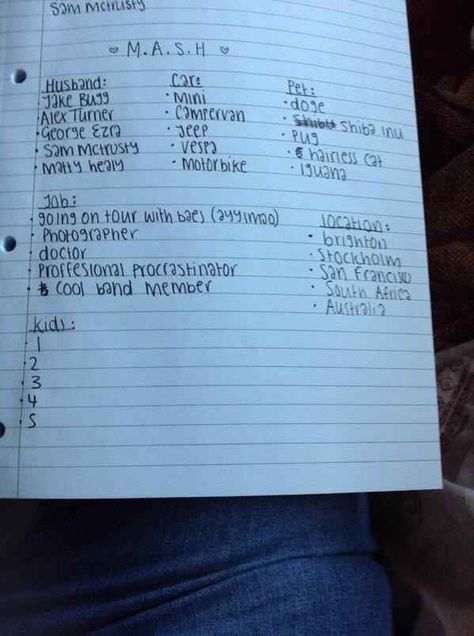 Sam McTrusty
♡ M.A.S.H ♡
Husband:
Jake Bugg
Alex Turner
George Ezra
Sam McTrusty
Matty healy
Car:
Mini
Campervan
Jeep
Vespa
Motorbike
Pet:
doge
Shiba inu
Pug
hairless cat
iguana
Job:
going on tour with baes (ayylmao)
Photographer
doctor
Proffesional procrastinator
Cool band member
location:
brighton
Stockholm
San Francisco
South Africa
Australia
kids:
1
2
3
4
5